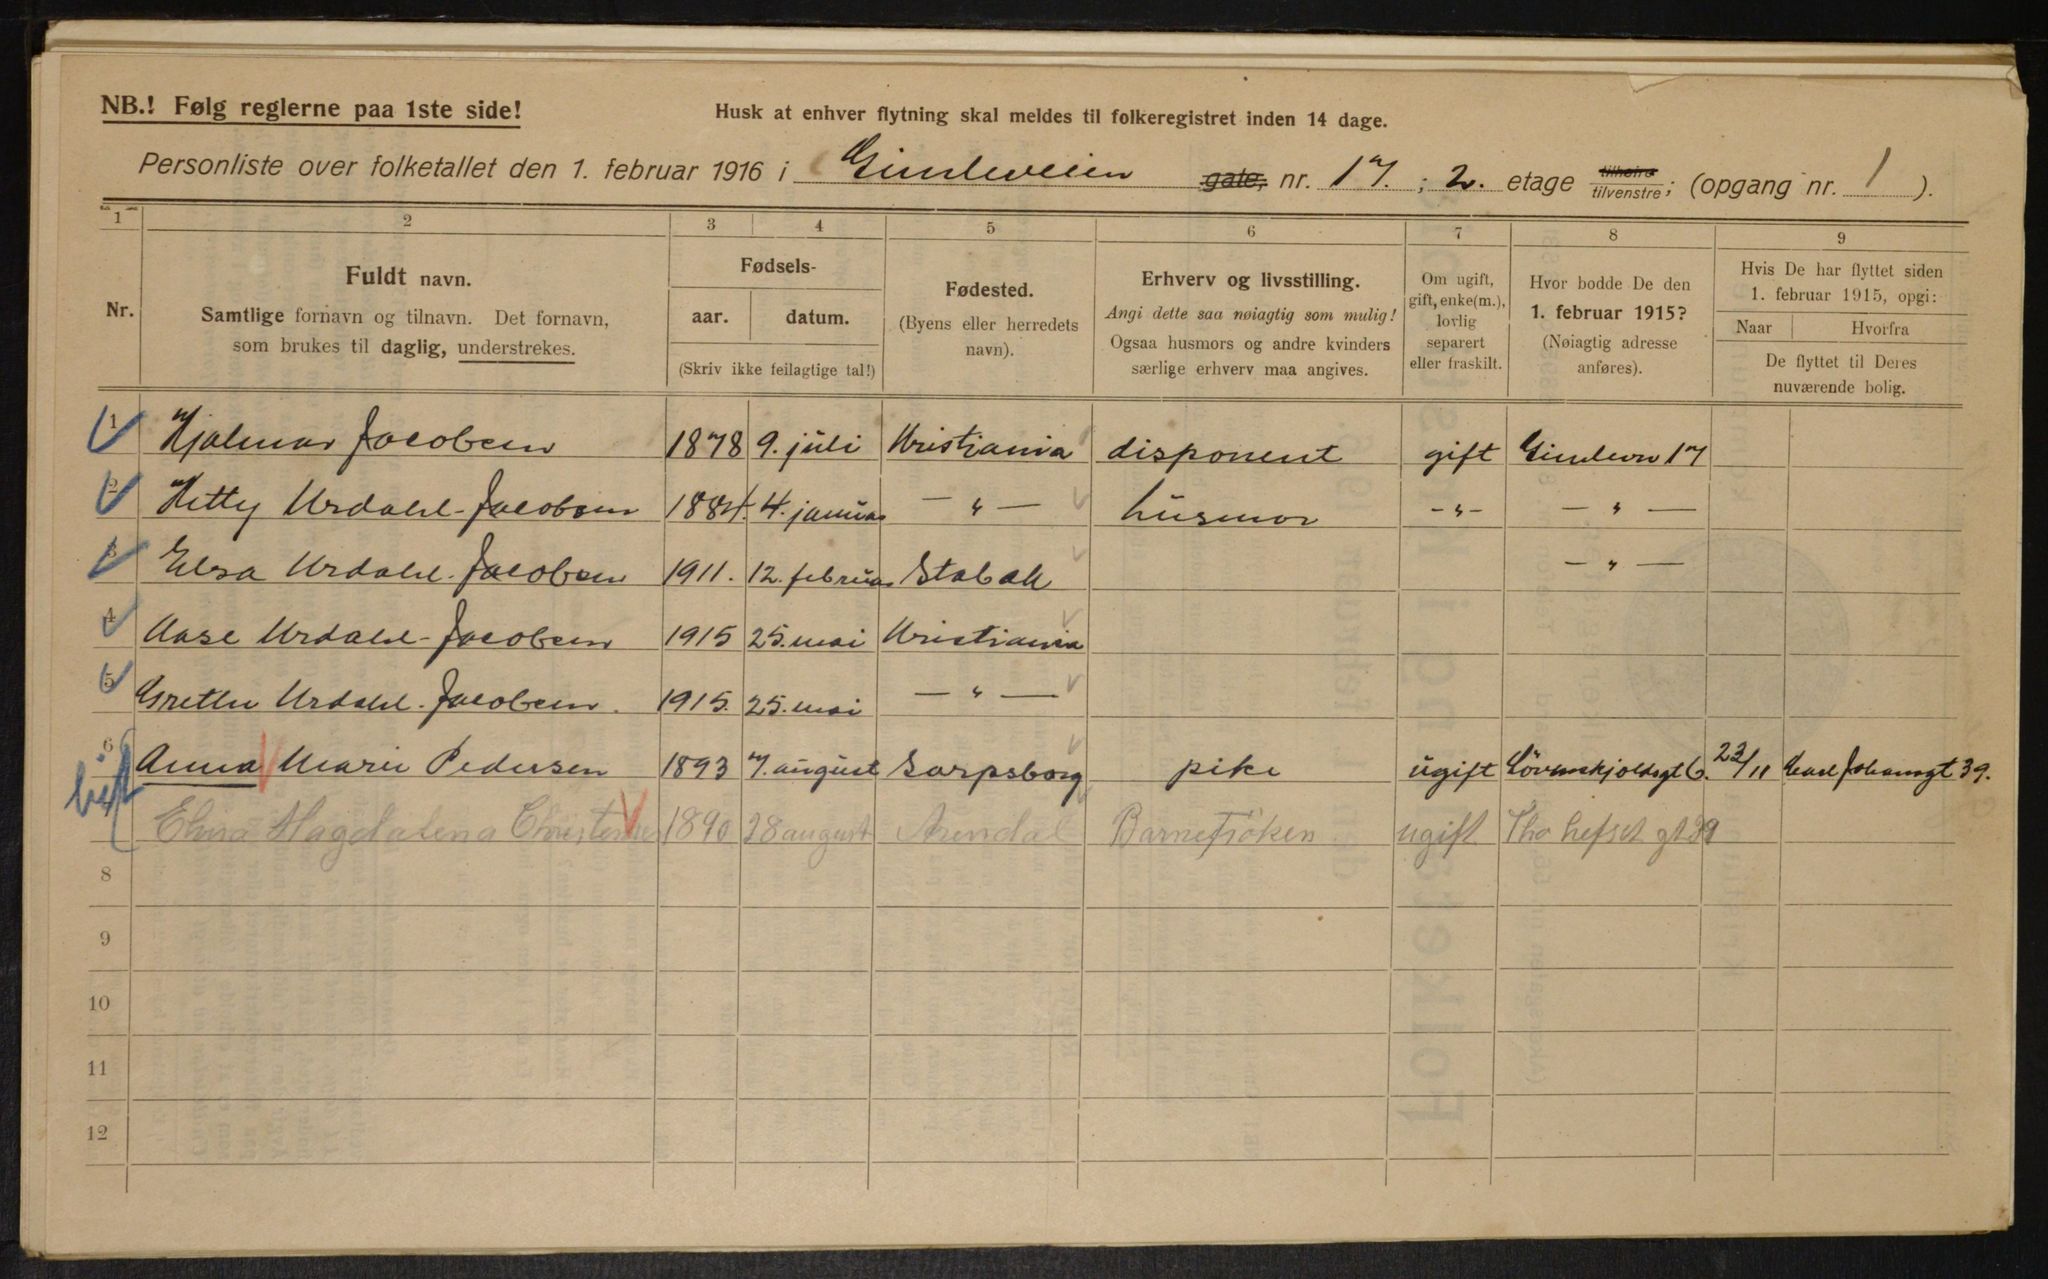 NB.! Følg reglerne paa 1ste side!
Husk at enhver flytning skal meldes til folkeregistret inden 14 dage.
Personliste over folketallet den 1. februar 1916 i Gimleveien gate, nr. 17. ; 2. etage tilhøire tilvenstre; (opgang nr. 1 ).
1 2 3 4 5 6 7 8 9
Nr.
Fuldt navn.
Samtlige fornavn og tilnavn. Det fornavn,
som brukes til daglig, understrekes.
Fødsels-
aar. datum.
(Skriv ikke feilagtige tal!)
Fødested.
(Byens eller herredets
navn).
Erhverv og livsstilling.
Angi dette saa nøiagtig som mulig!
Ogsaa husmors og andre kvinders
særlige erhverv maa angives.
Om ugift,
gift, enke(m.),
lovlig
separert
eller fraskilt.
Hvor bodde De den
1. februar 1915?
(Nøiagtig adresse
anføres).
Hvis De har flyttet siden
1. februar 1915, opgi:
Naar Hvorfra
De flyttet til Deres
nuværende bolig.
1 Hjalmar Jacobsen 1878 9. juli Kristiania disponent gift Gimlevn 17
2 Hetty Urdahl-Jacobsen 1884. 4. januar — " — husmor -"- — " —
3 Elsa Urdahl-Jacobsen 1911. 12. februar Stabæk — " —
4 Aase Urdahl-Jacobsen 1915 25. mai Kristiania
5 Grethe Urdahl-Jacobsen. 1915. 25. mai — " —
6 Anna Marie Pedersen 1893 7. august Sarpsborg pike ugift Løvenskjoldsgt 6. 23/11 Carl Johansgt 39.
Magdalena Christensen 1890 28 august Arendal Barnefrøken ugift gt 39
8
9
10
11
12